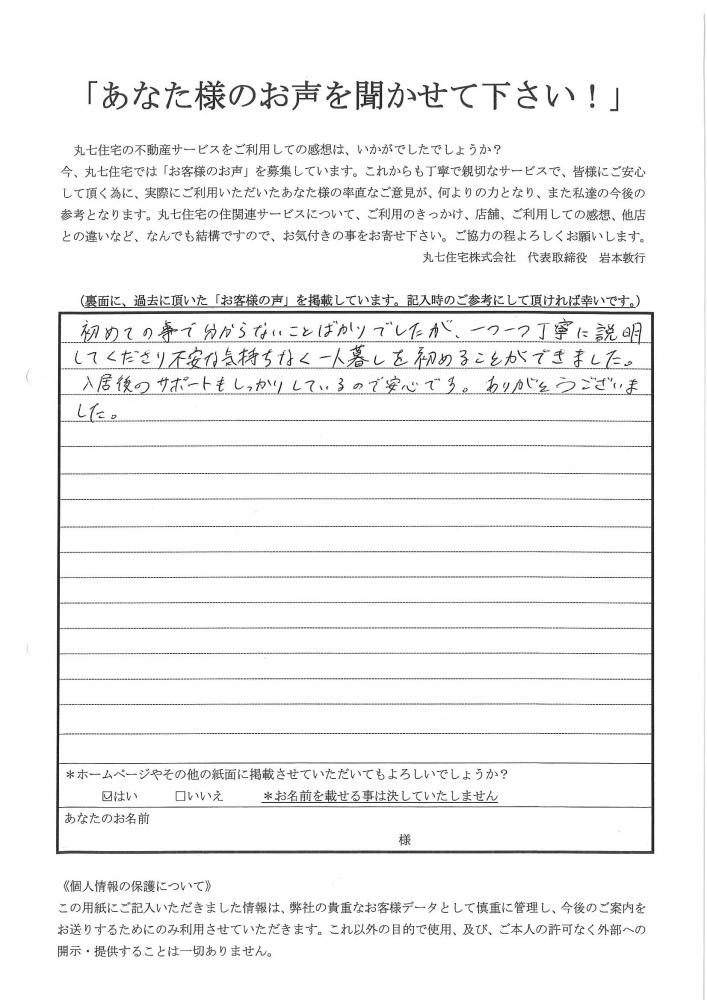 「あなた様のお声を聞かせて下さい！」
丸七住宅の不動産サービスをご利用しての感想は、いかがでしたでしょうか？
今、丸七住宅では「お客様のお声」を募集しています。これからも丁寧で親切なサービスで、皆様にご安心
して頂く為に、実際にご利用いただいたあなた様の率直なご意見が、何よりの力となり、また私達の今後の
参考となります。丸七住宅の住関連サービスについて、ご利用のきっかけ、店舗、ご利用しての感想、他店
との違いなど、なんでも結構ですので、お気付きの事をお寄せ下さい。ご協力の程よろしくお願いします。
丸七住宅株式会社　代表取締役　岩本敦行
（裏面に、過去に頂いた「お客様の声」を掲載しています。記入時のご参考にして頂ければ幸いです。）
初めての事で分からないことばかりでしたが、一つ一つ丁寧に説明
してくださり不安な気持ちなく一人暮しを初めることができました。
入居後のサポートもしっかりしているので安心です。ありがとうございま
した。
＊ホームページやその他の紙面に掲載させていただいてもよろしいでしょうか？
☑はい　□いいえ　＊お名前を載せる事は決していたしません
あなたのお名前
様
《個人情報の保護について》
この用紙にご記入いただきました情報は、弊社の貴重なお客様データとして慎重に管理し、今後のご案内を
お送りするためにのみ利用させていただきます。これ以外の目的で使用、及び、ご本人の許可なく外部への
開示・提供することは一切ありません。